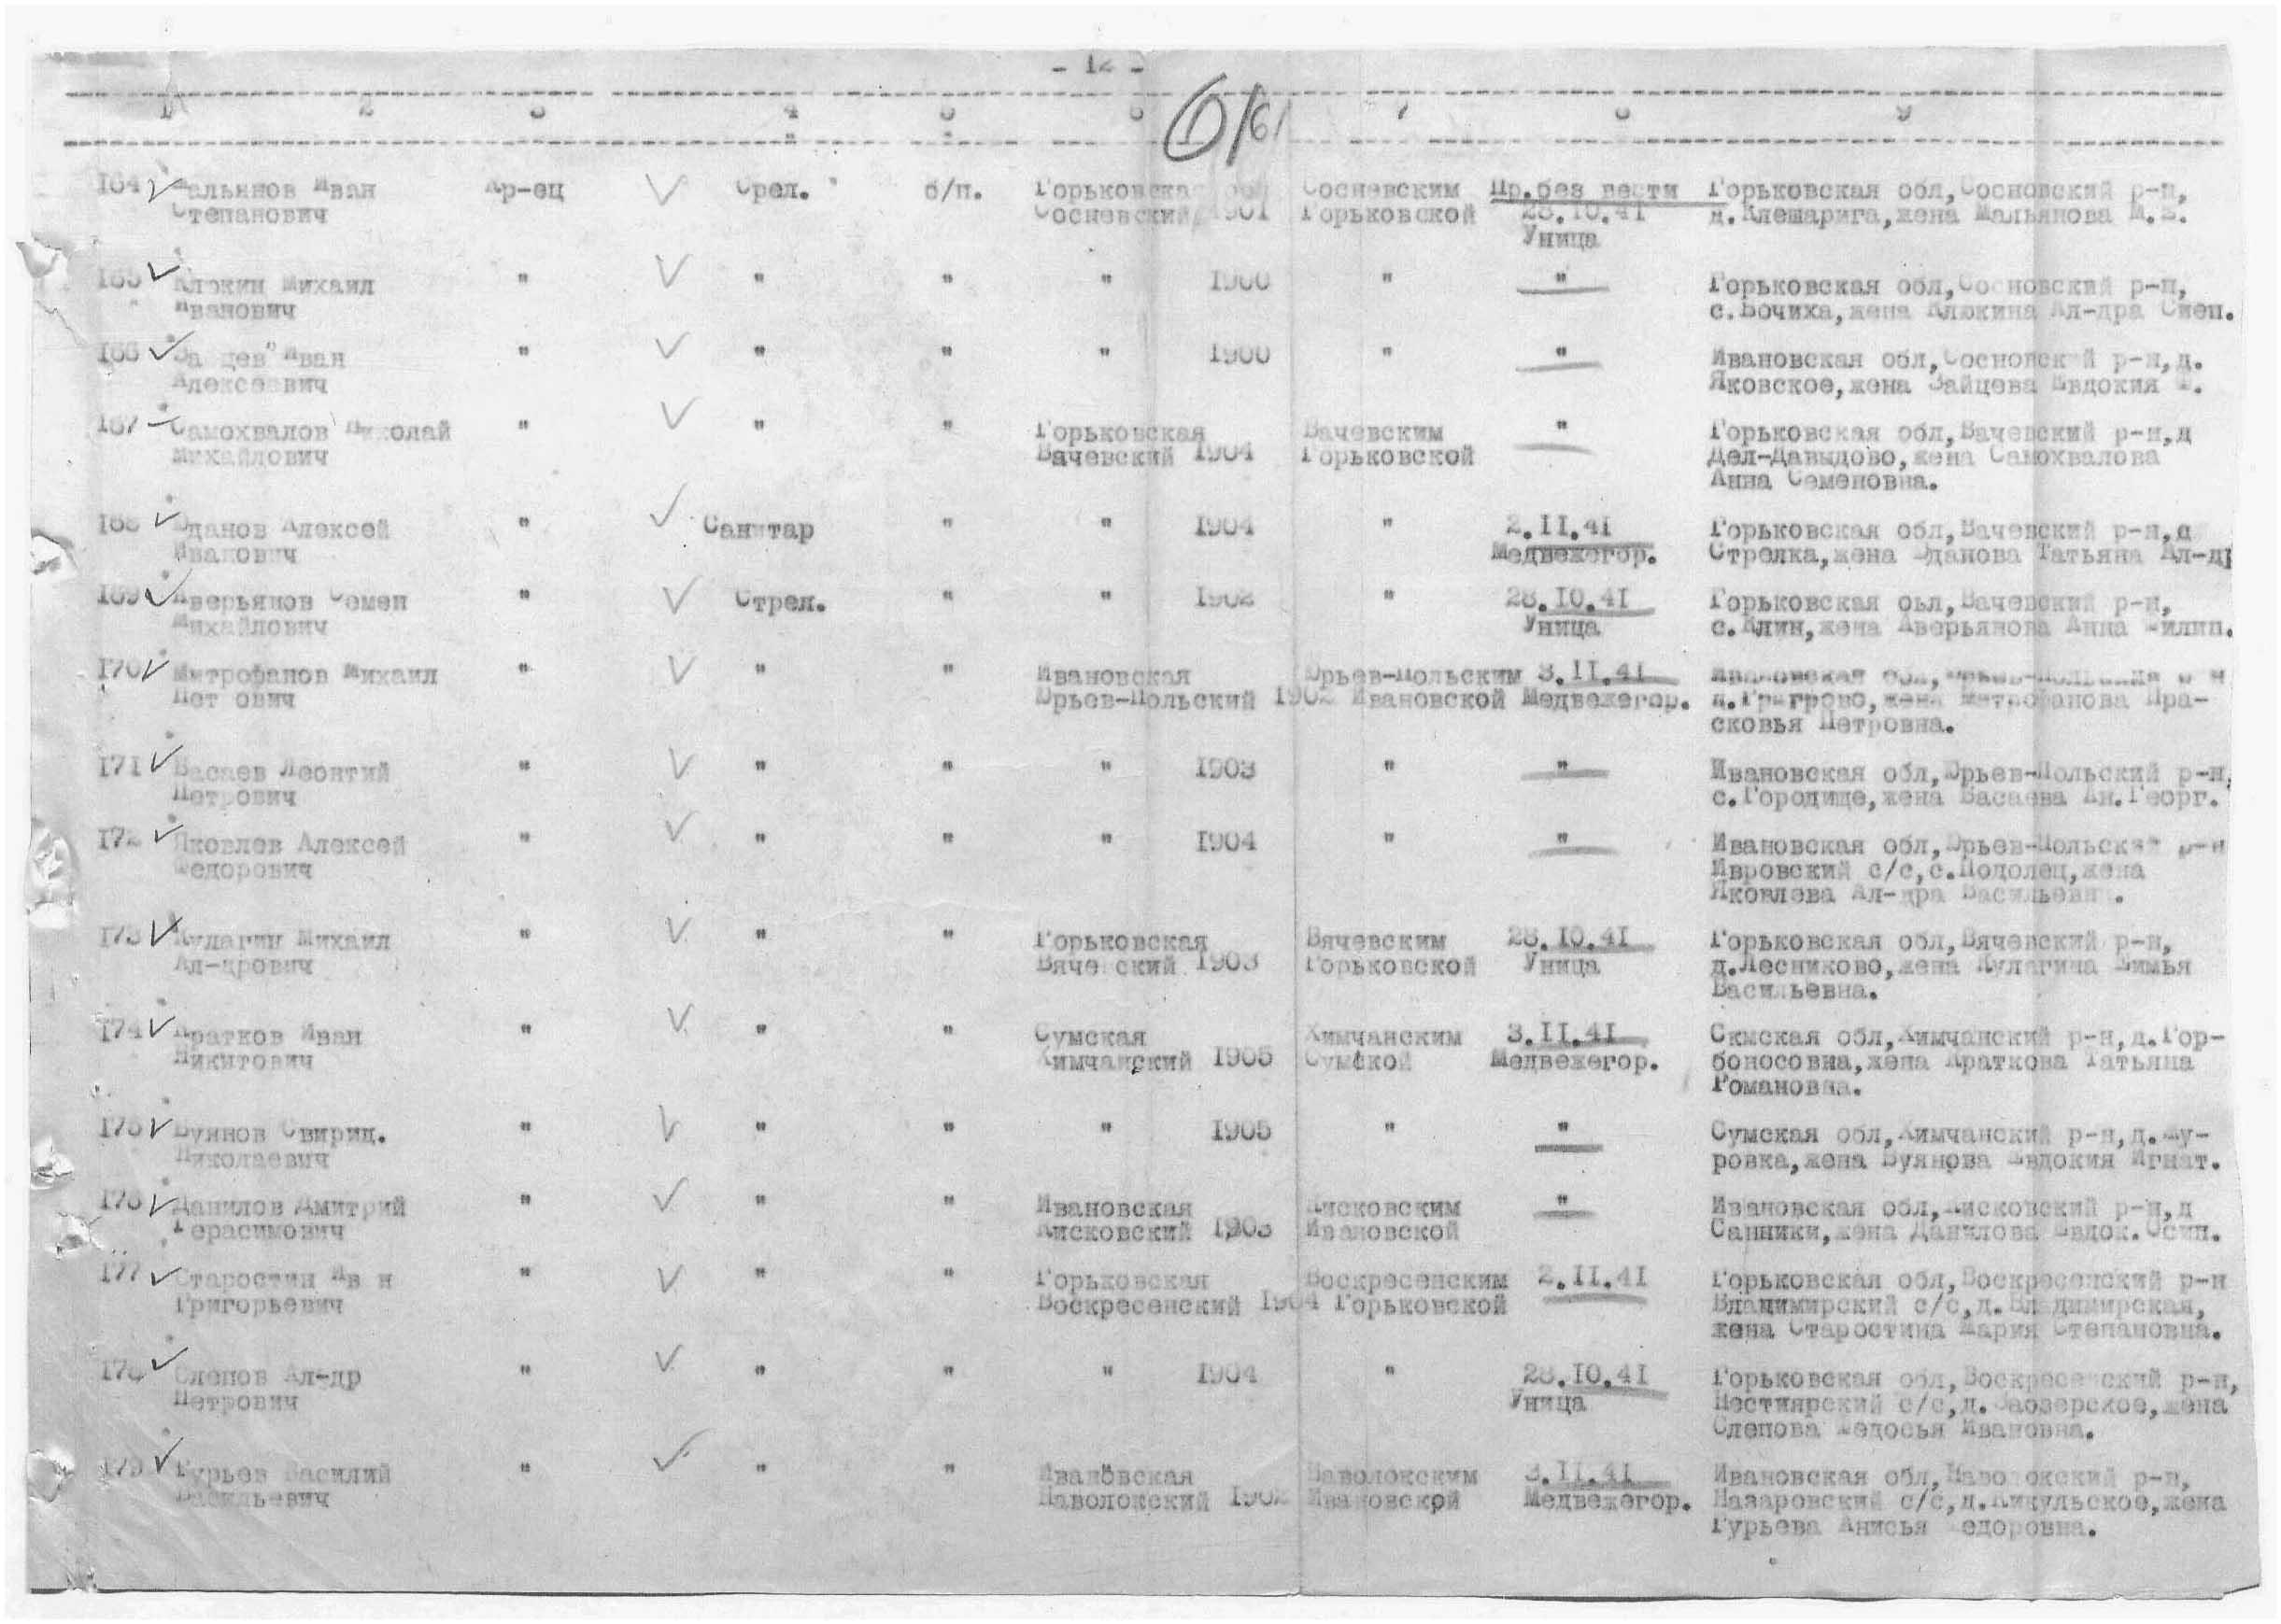 - 12 -
1 2 3 4 5 6 7 8 9
164 Мальянов Иван Кр-ец Срел. б/п. Горьковская Сосневским Пр.без вести Горьковская обл,Сосновский р-н,
Степанович Сосневский 1901 Горьковской 28.10.41 д.Клешарига,жена Мальянова М.
Уница
165 Клюкин Михаил " " " " 1900 " " Горьковская обл,Сосновский р-н,
Иванович с.Бочиха,жена Клюкина Ал-дра Смен.
166 За цев Иван " " " " 1900 " " Ивановская обл,Сосновский р-н,д.
Алексеевич Яковское,жена Зайцева Евдокия
167 Самохвалов Николай " " " Горьковская Вачевским " Горьковская обл,Вачевский р-н,д
Михайлович Вачевский 1904 Горьковской Дел-Давыдово,жена Самохвалова
Анна Семеновна.
168 Жданов Алексей " Санитар " " 1904 " 2.II.4I Горьковская обл,Вачевский р-н,д
Иванович Медвежегор. Стрелка,жена Жданова Татьяна Ал-др
169 Аверьянов Семен " Стрел. " " 1902 " 28.I0.4I Горьковская оьл,Вачевский р-н,
Михайлович Уница с.Клин,жена Аверьянова Анна Филип.
170 Митрофанов Михаил " " " Ивановская Юрьев-Польским 3.II.4I Ивановская обл,Юрьев-Польский р-н
Пет ович Юрьев-Польский 1902 Ивановской Медвежегор. жена Митрофанова Пра-
сковья Петровна.
171 Васаев Леонтий " " " " 1903 " " Ивановская обл,Юрьев-Польский р-н,
Петрович с.Городище,жена Васаева Ан.Георг.
172 Яковлев Алексей " " " " 1904 " " Ивановская обл,Юрьев-Польский р-н
Федорович Ивровский с/с,с.Подолец,жена
Яковлева Ал-дра Васильевн .
173 Кулагин Михаил " " " Горьковская Вячевским 28.I0.4I Горьковская обл,Вячевский р-н,
Ал-дрович Вяче ский 1903 Горьковской Уница д.Лесниково,жена Кулагина
Васильевна.
174 Кратков Иван " " " Сумская Химчанским 3.II.4I Скмская обл,Химчанский р-н,д.Гор-
Никитович Химчанский 1905 Сумской Медвежегор. боносовна,жена Краткова Татьяна
Романовна.
175 Буянов Свирид. " " " " 1905 " " Сумская обл,Химчанский р-н,д.
Николаевич ровка,жена Буянова Евдокия Игнат.
176 Данилов Дмитрий " " " Ивановская Лисковским " Ивановская обл,Лисковский р-н,д
Герасимович Лисковский 1903 Ивановской Санники,жена Данилова Евдок.Осип.
177 Старостин Ив н " " " Горьковская Воскресенским 2.II.4I Горьковская обл,Воскресенский р-н
Григорьевич Воскресенский 1904 Горьковской Владимирский с/с,д.Владимирская,
жена Старостина Мария Степановна.
178 Слепов Ал-др " " " " 1904 " 28.I0.4I Горьковская обл,Воскресенский р-н,
Петрович Уница Нестиярский с/с,д.Заозерское,жена
Слепова Федосья Ивановна.
179 Гурьев Василий " " " Ивановская Наволокским 3.II.4I Ивановская обл,Наволокский р-н,
Васильевич Наволокский 1902 Ивановской Медвежегор. Назаровский с/с,д.Кикульское,жена
Гурьева Анисья едоровна.